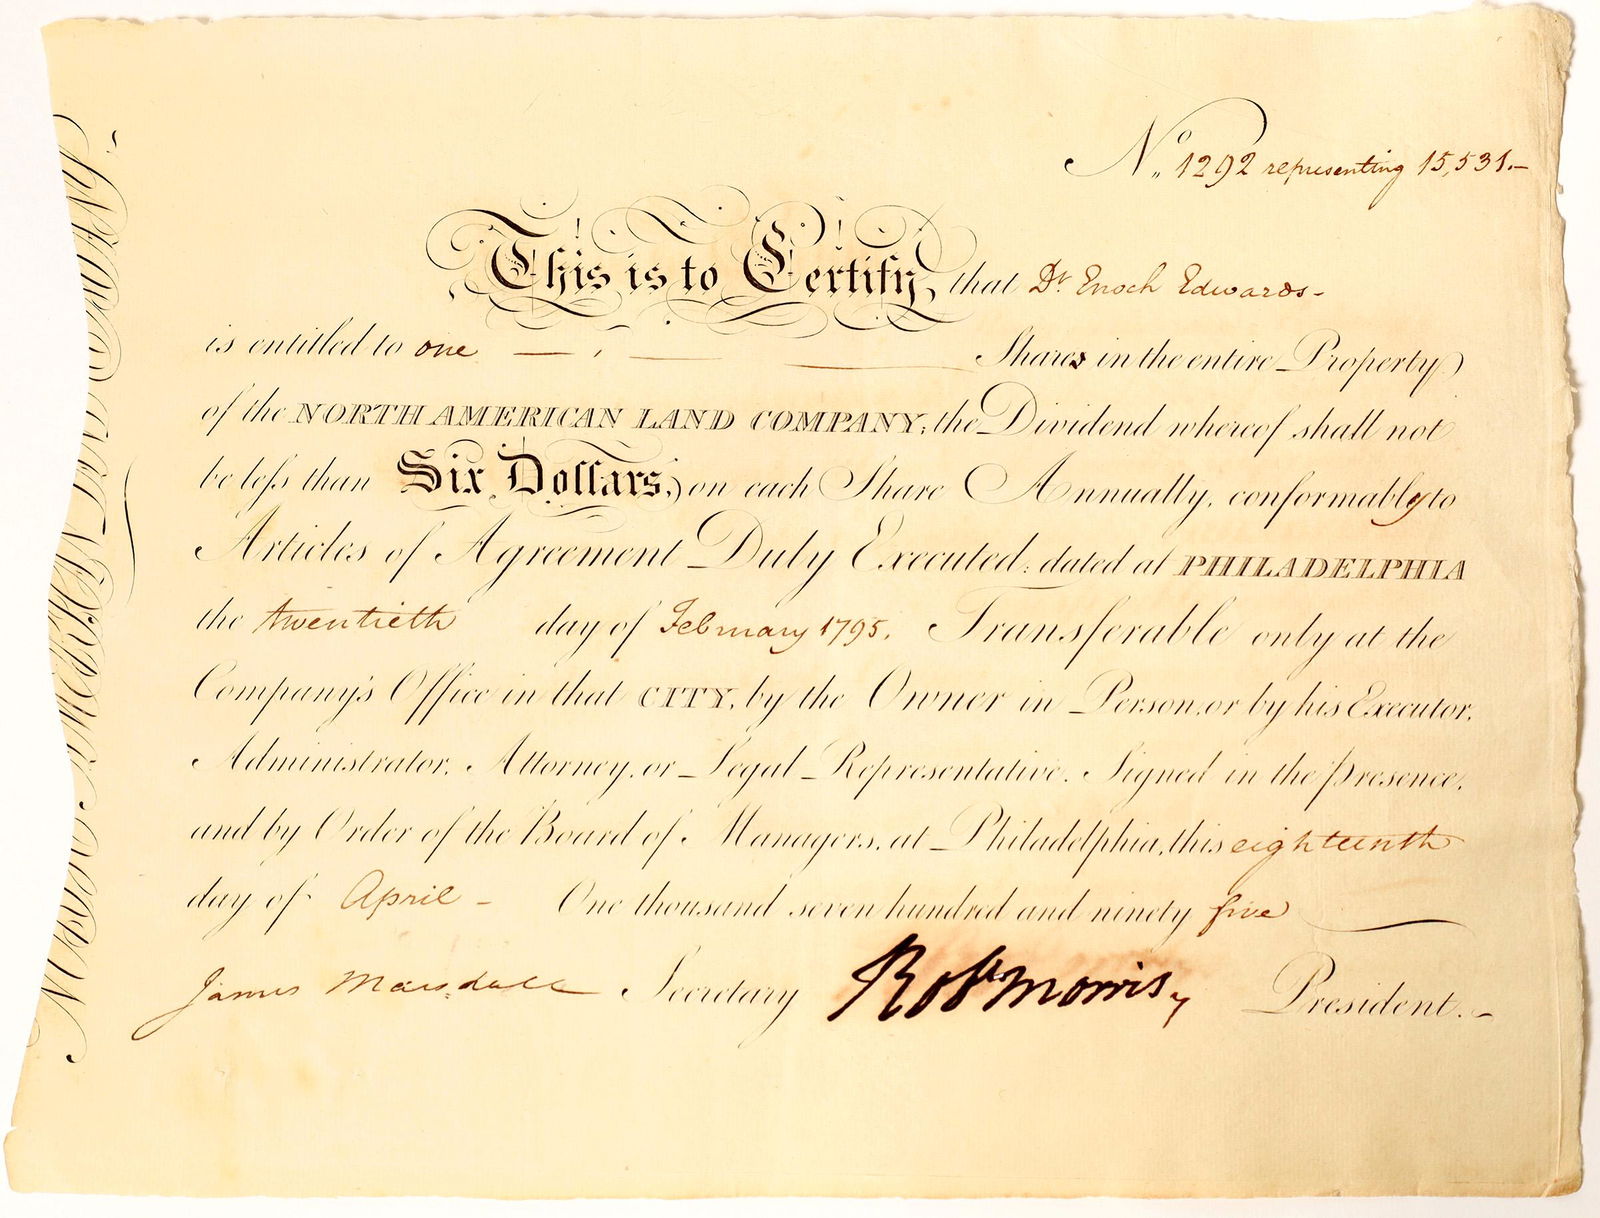 No. 1292 representing 15,531.-
This is to Certify, that Dr. Enoch Edwards-
is entitled to one Shares in the entire Property
of the NORTH AMERICAN LAND COMPANY; the Dividend whereof shall not
be less than Six Dollars, on each Share Annually, conformably to
Articles of Agreement Duly Executed; dated at PHILADELPHIA
the twentieth day of February 1795. Transferable only at the
Company's Office in that CITY, by the Owner in Person, or by his Executor,
Administrator, Attorney, or Legal Representative. Signed in the presence,
and by Order of the Board of Managers, at Philadelphia, this eighteenth
day of April - One thousand seven hundred and ninety five
James Marshall Secretary Robt Morris, President.
NORTH AMERICAN LAND COMPANY